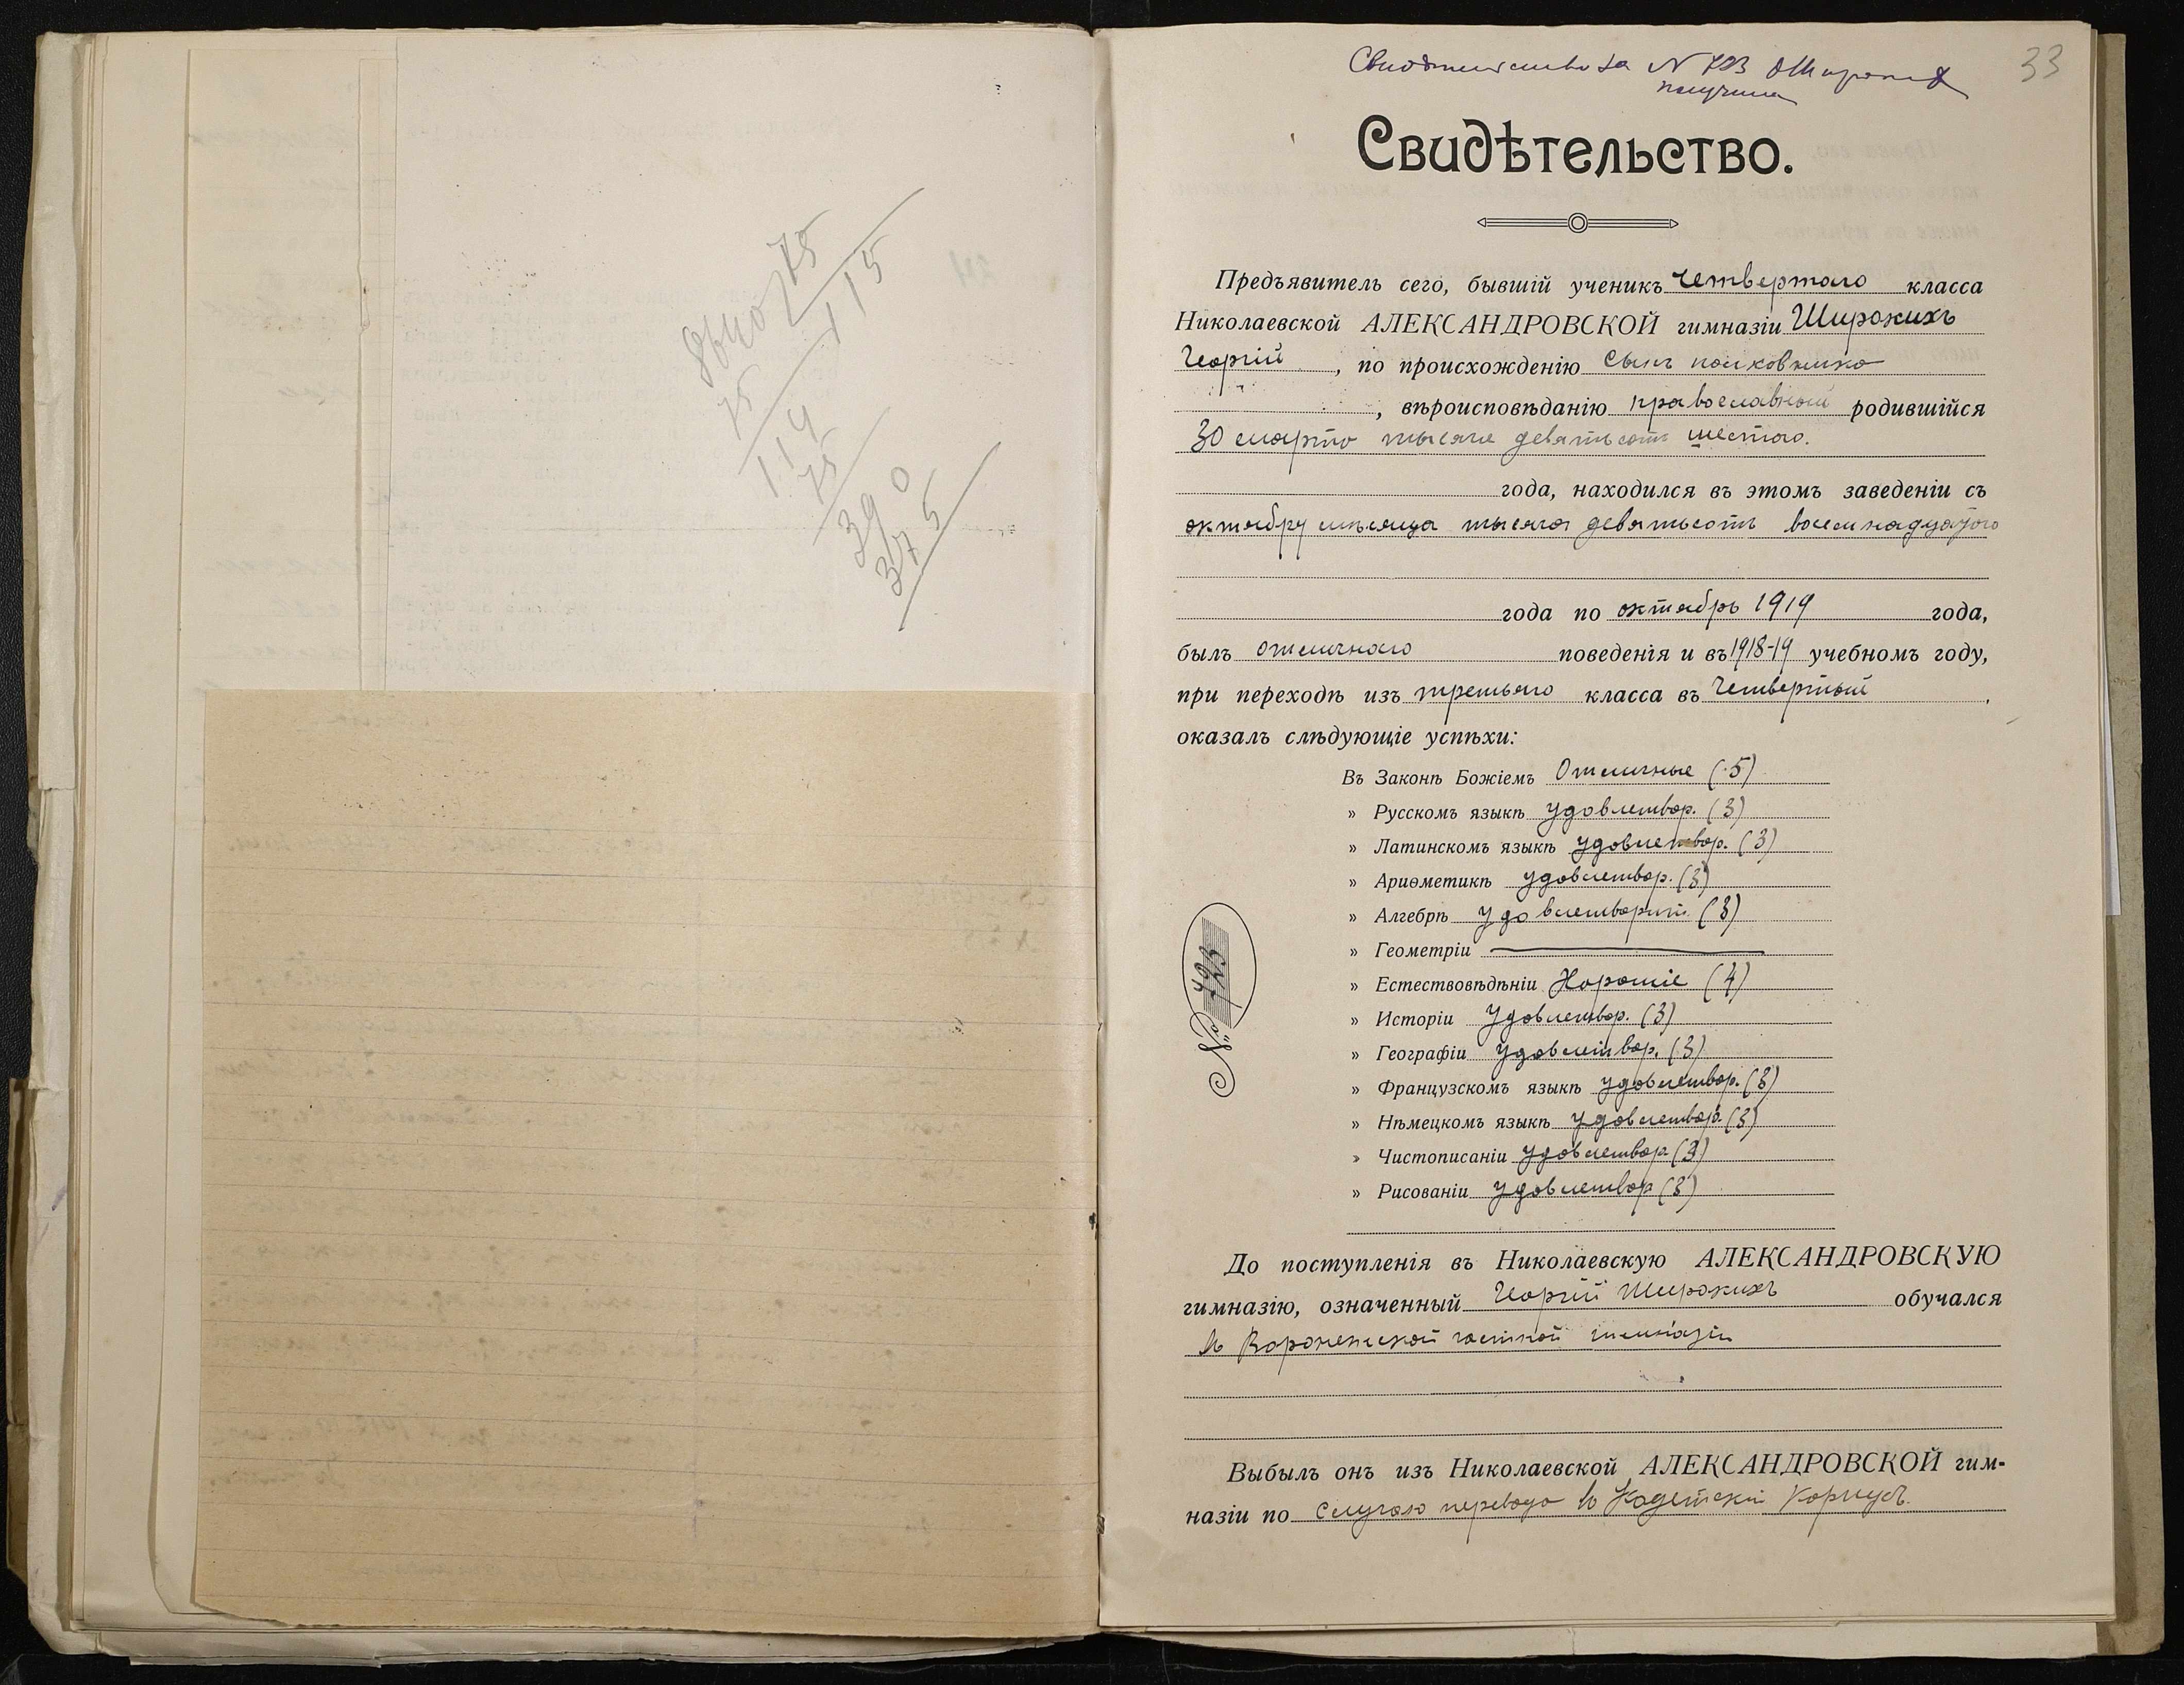 8640 | 75
115
75
114
75
390
375
33
Свидетельство за N 723
получила
Свидѣтельство.
Предъявитель сего, бывшій ученикъ четвертаго класса
Николаевской АЛЕКСАНДРОВСКОЙ гимназіи Широкихъ
Георгій , по происхожденію сынъ полковника
, вѣроисповѣданію православный родившійся
30 марта тысяча девятьсотъ шестого.
года, находился въ этомъ заведеніи съ
октября мѣсяца тысяча девятьсотъ восемнадцатого
года по октябрь 1919 года,
былъ отличнаго поведенія и въ 1918-19 учебномъ году,
при переходѣ изъ третьяго класса въ четвертый ,
оказалъ слѣдующіе успѣхи:
Въ Законѣ Божіемъ Отличные (5)
» Русскомъ языкѣ удовлетвор. (3)
» Латинскомъ языкѣ удовлетвор. (3)
» Ариѳметикѣ удовлетвор. (3)
» Алгебрѣ удовлетворит. (3)
» Геометріи —
» Естествовѣдѣніи Хорошіе (4)
» Исторіи Удовлетвор. (3)
» Географіи удовлетвор. (3)
» Французскомъ языкѣ удовлетвор. (3)
» Нѣмецкомъ языкѣ удовлетвор. (3)
» Чистописаніи удовлетвор (3)
» Рисованіи удовлетвор (3)
№ 723
До поступленія въ Николаевскую АЛЕКСАНДРОВСКУЮ
гимназію, означенный Георгій Широкихъ обучался
въ Воронежской частной гимназіи
Выбылъ онъ изъ Николаевской АЛЕКСАНДРОВСКОЙ гим-
назіи по случаю перевода въ Кадетскій Корпусъ.